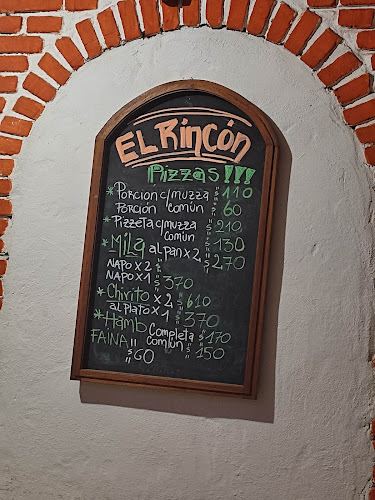 EL RINCÓN
Pizzas!!!
* PORCIÓN c/muzza "$" 110
PORCIÓN común "$" 60
* Pizzeta c/muzza "$" 210
común "$" 130
* Mila al pan x 2 "$" 270
NAPO x 2 "$"
NAPO x 1 "$" 370
* Chivito x 2 "$" 610
al plato x 1 "$" 370
* Hamb Completa "$" 170
común "$" 150
FAINA "$" 60